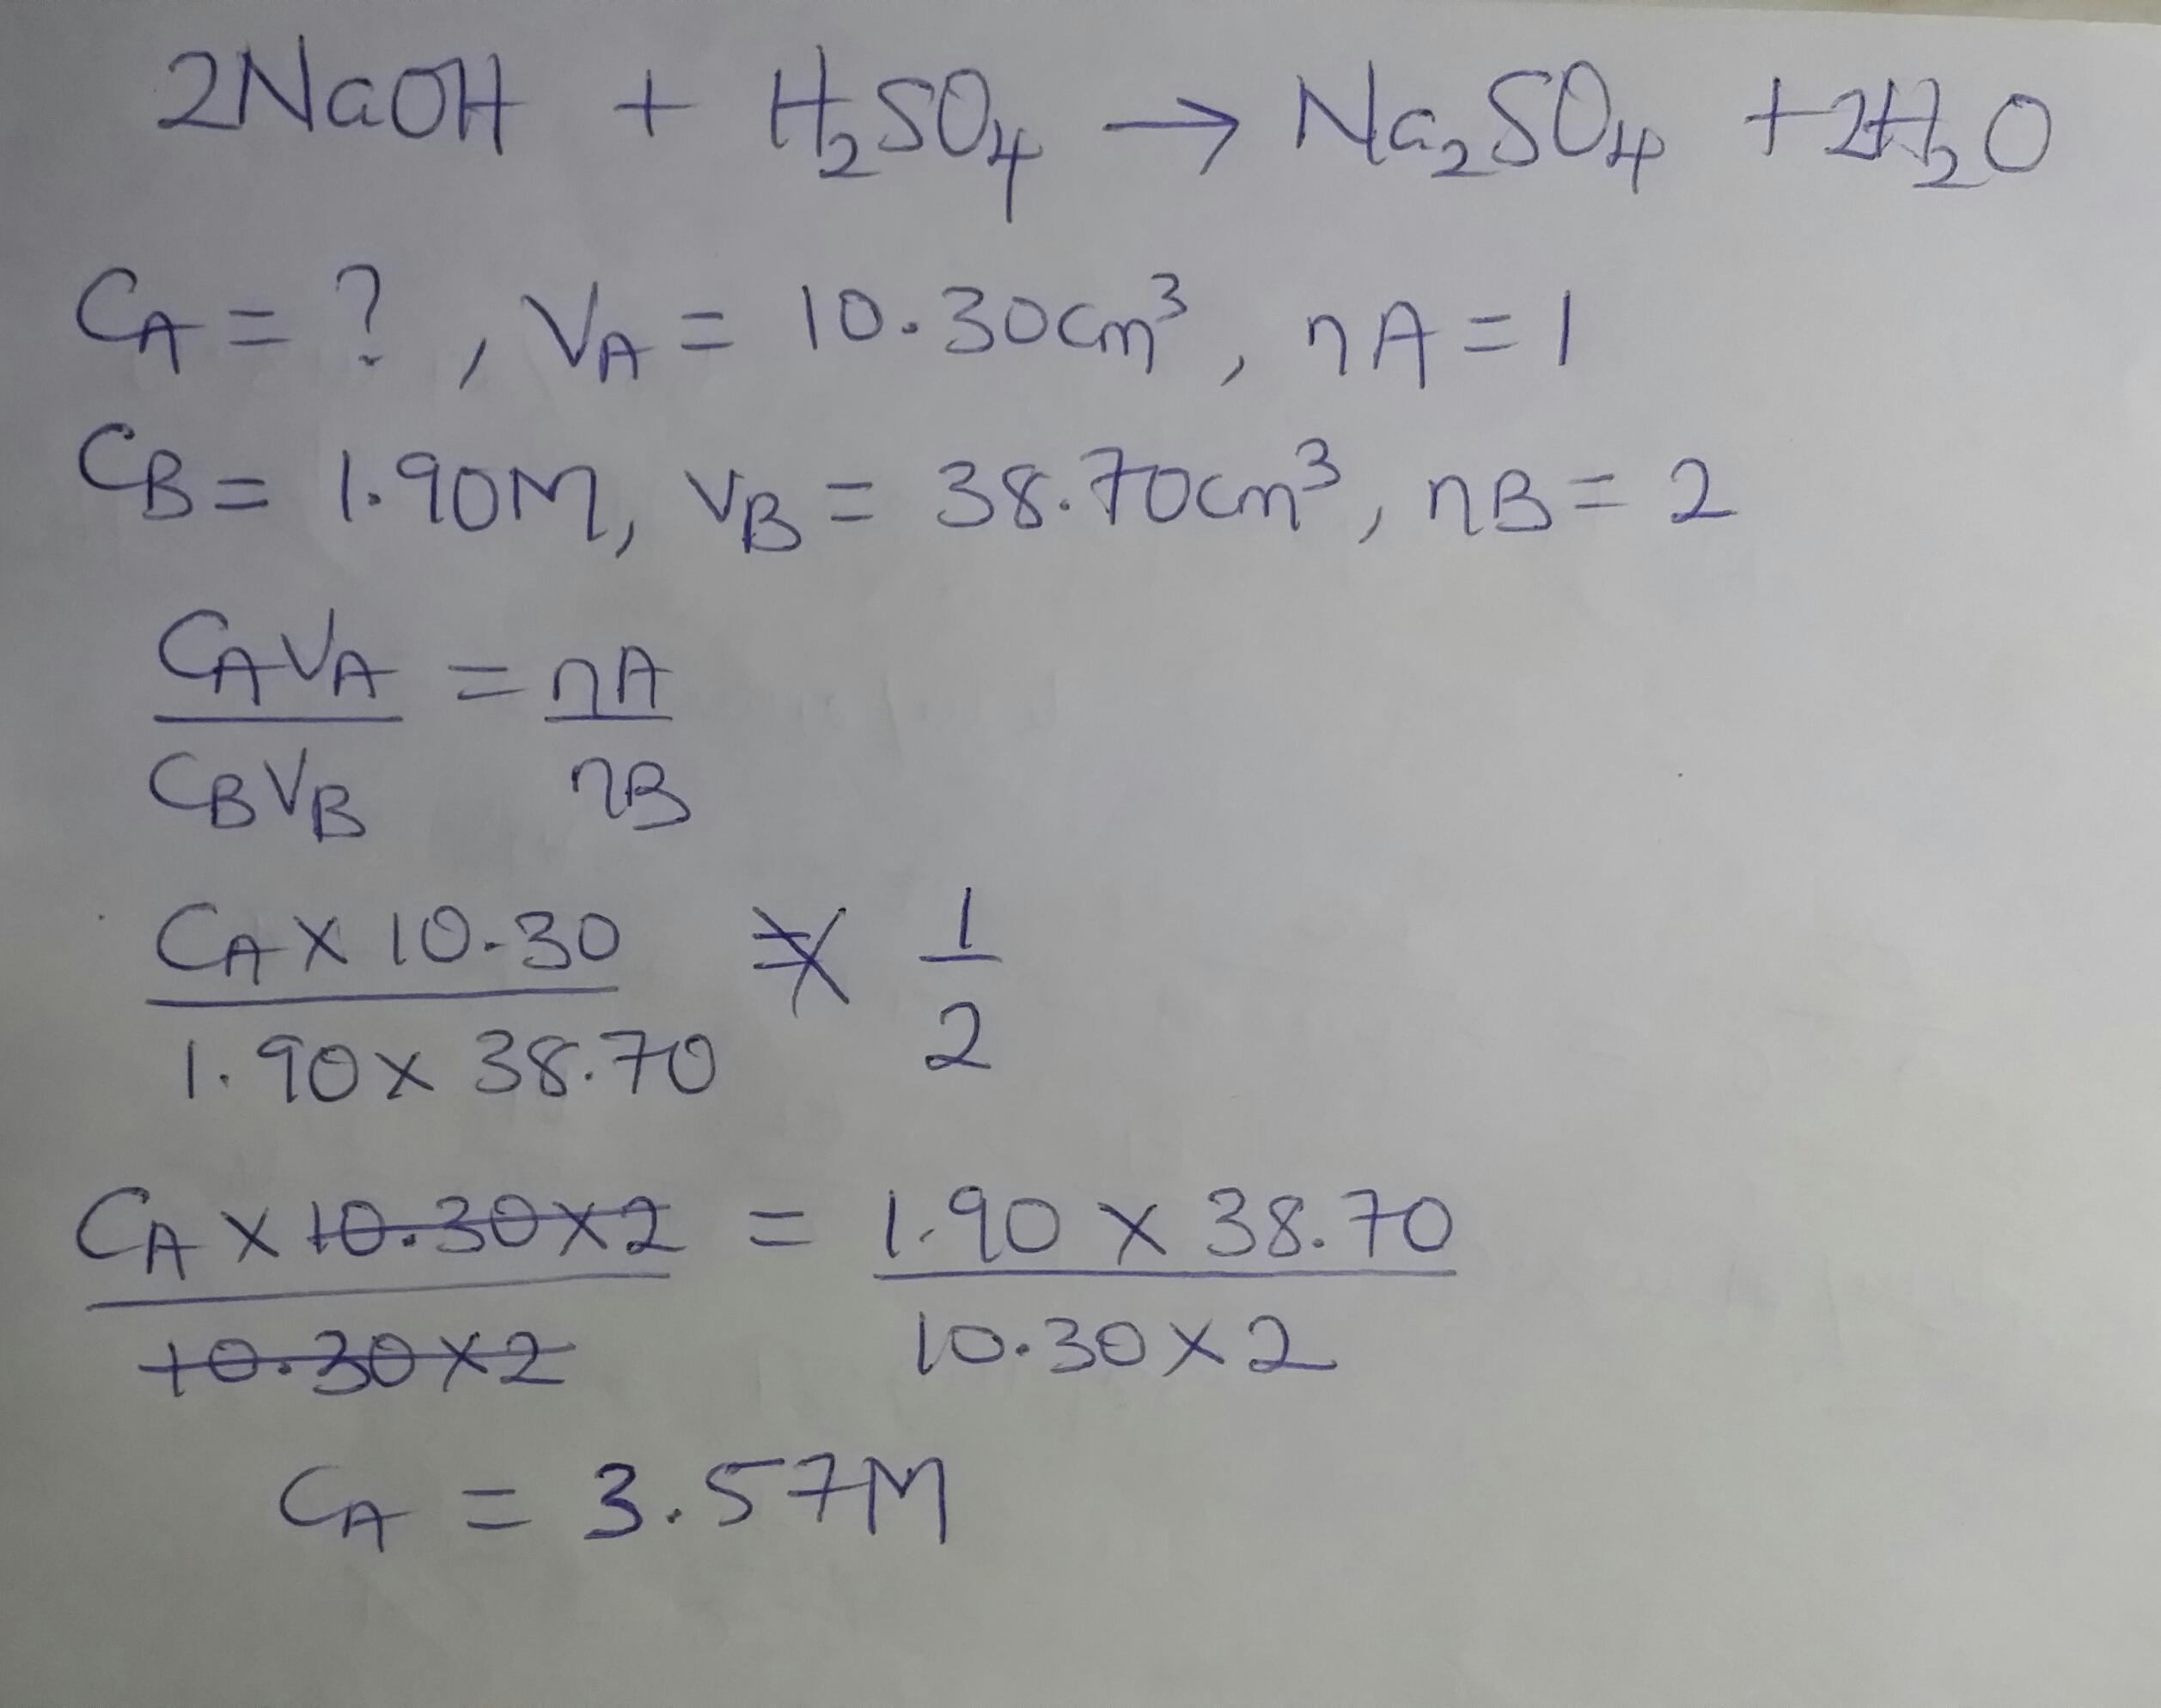 2NaOH + H₂SO₄ → Na₂SO₄ + 2H₂O
CA = ?, VA = 10.30cm³, nA = 1
CB = 1.90M, VB = 38.70cm³, nB = 2
CAVA = nA
CBVB nB
CA × 10.30 = 1
1.90 × 38.70 2
CA × 10.30 × 2 = 1.90 × 38.70
10.30 × 2 10.30 × 2
CA = 3.57M